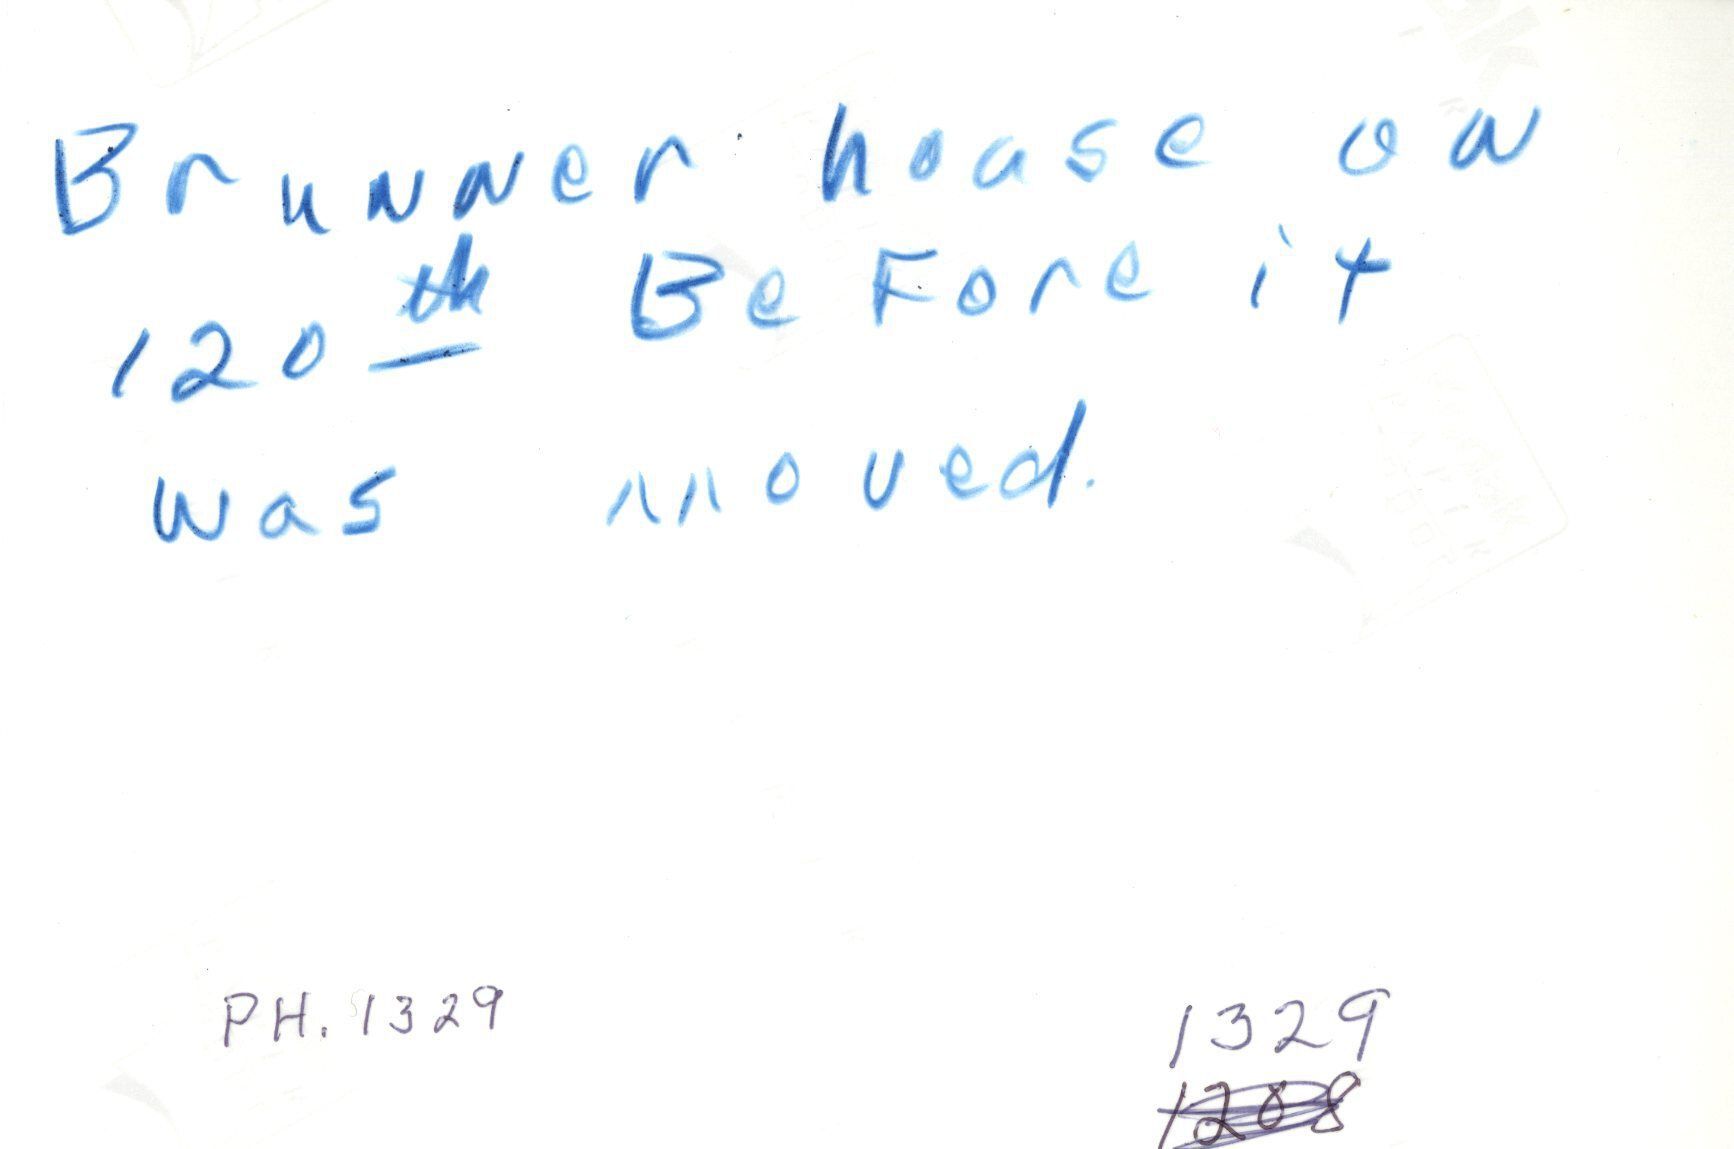 Brunner house on
120th BeFore it
was moved.
PH. 1329
1329
1208